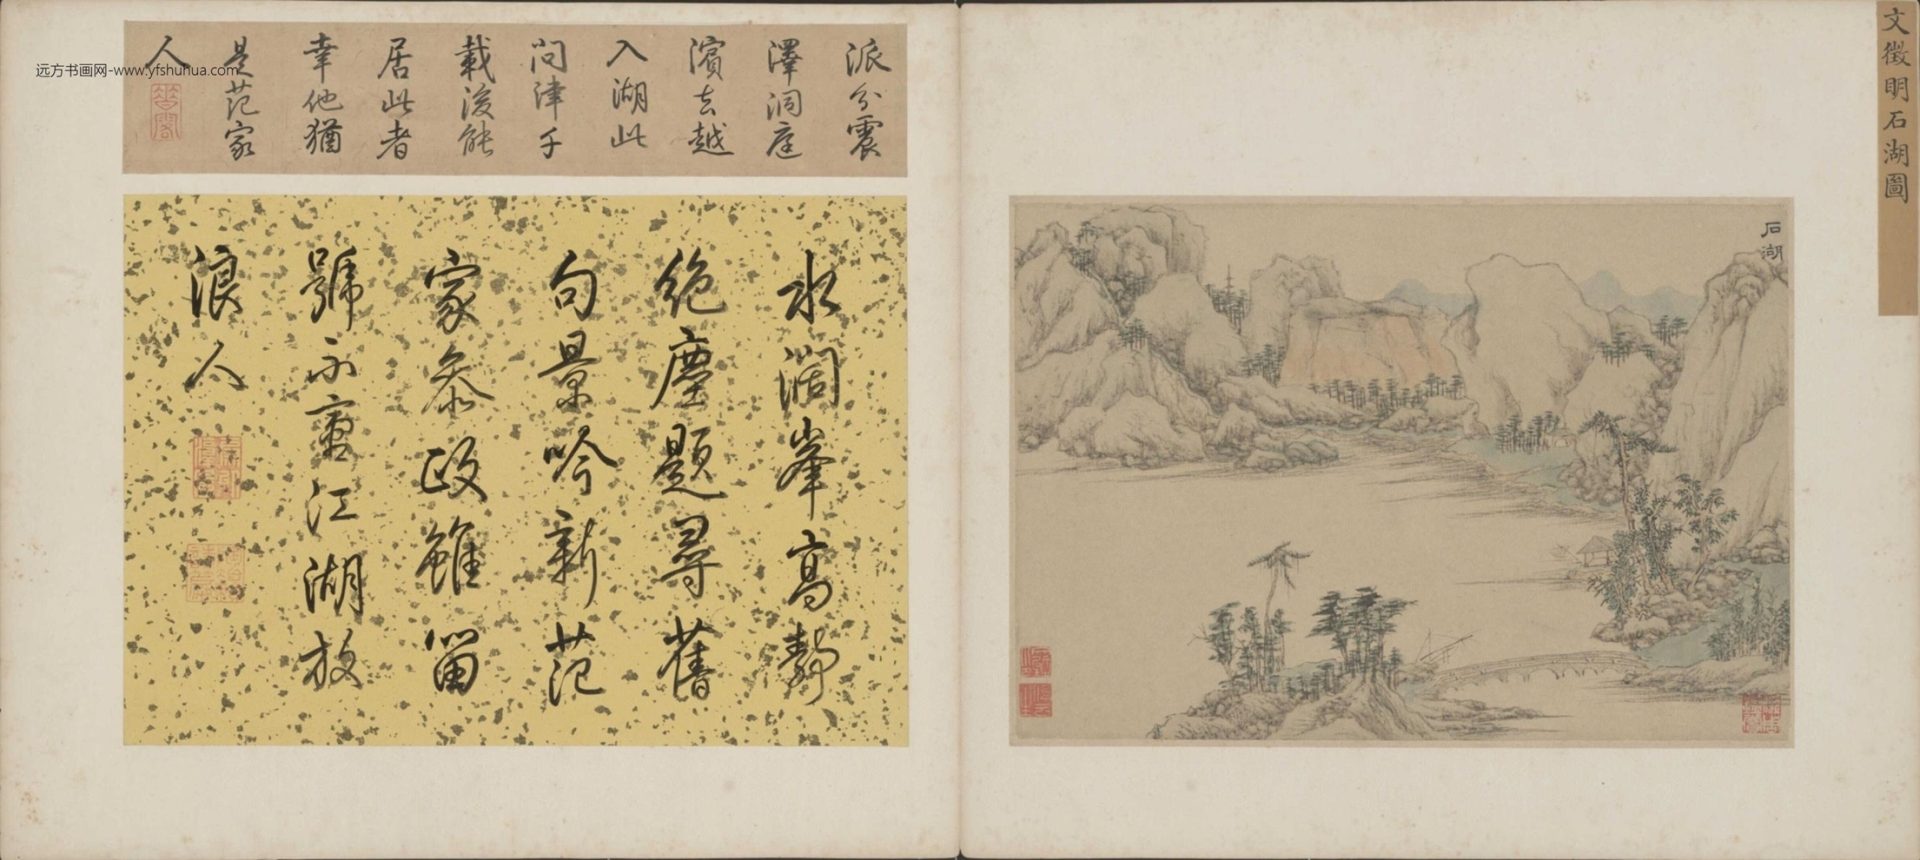 文徵明石湖圖
石湖
派分震
澤洞庭
濱去越
入湖此
问津千
載後能
居此者
幸他猶
是范家
人
水濶峯高静
絶塵題尋舊
句景吟新范
家叅政雖留
號不重江湖放
浪人
远方书画网-www.yfshuhua.com